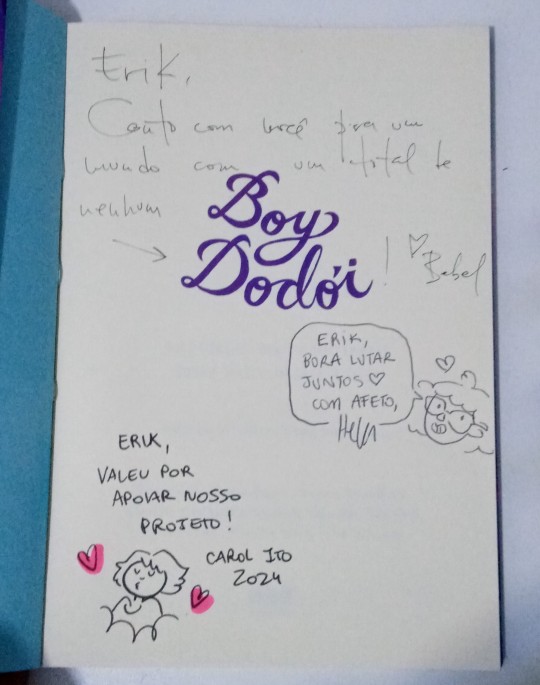 Erik,
Conto com você pra um
mundo com um total de
nenhum
Boy
Dodói!
Bebel
ERIK,
BORA LUTAR
JUNTOS
COM AFETO,
ERIK,
VALEU POR
APOIAR NOSSO
PROJETO!
CAROL ITO
2024